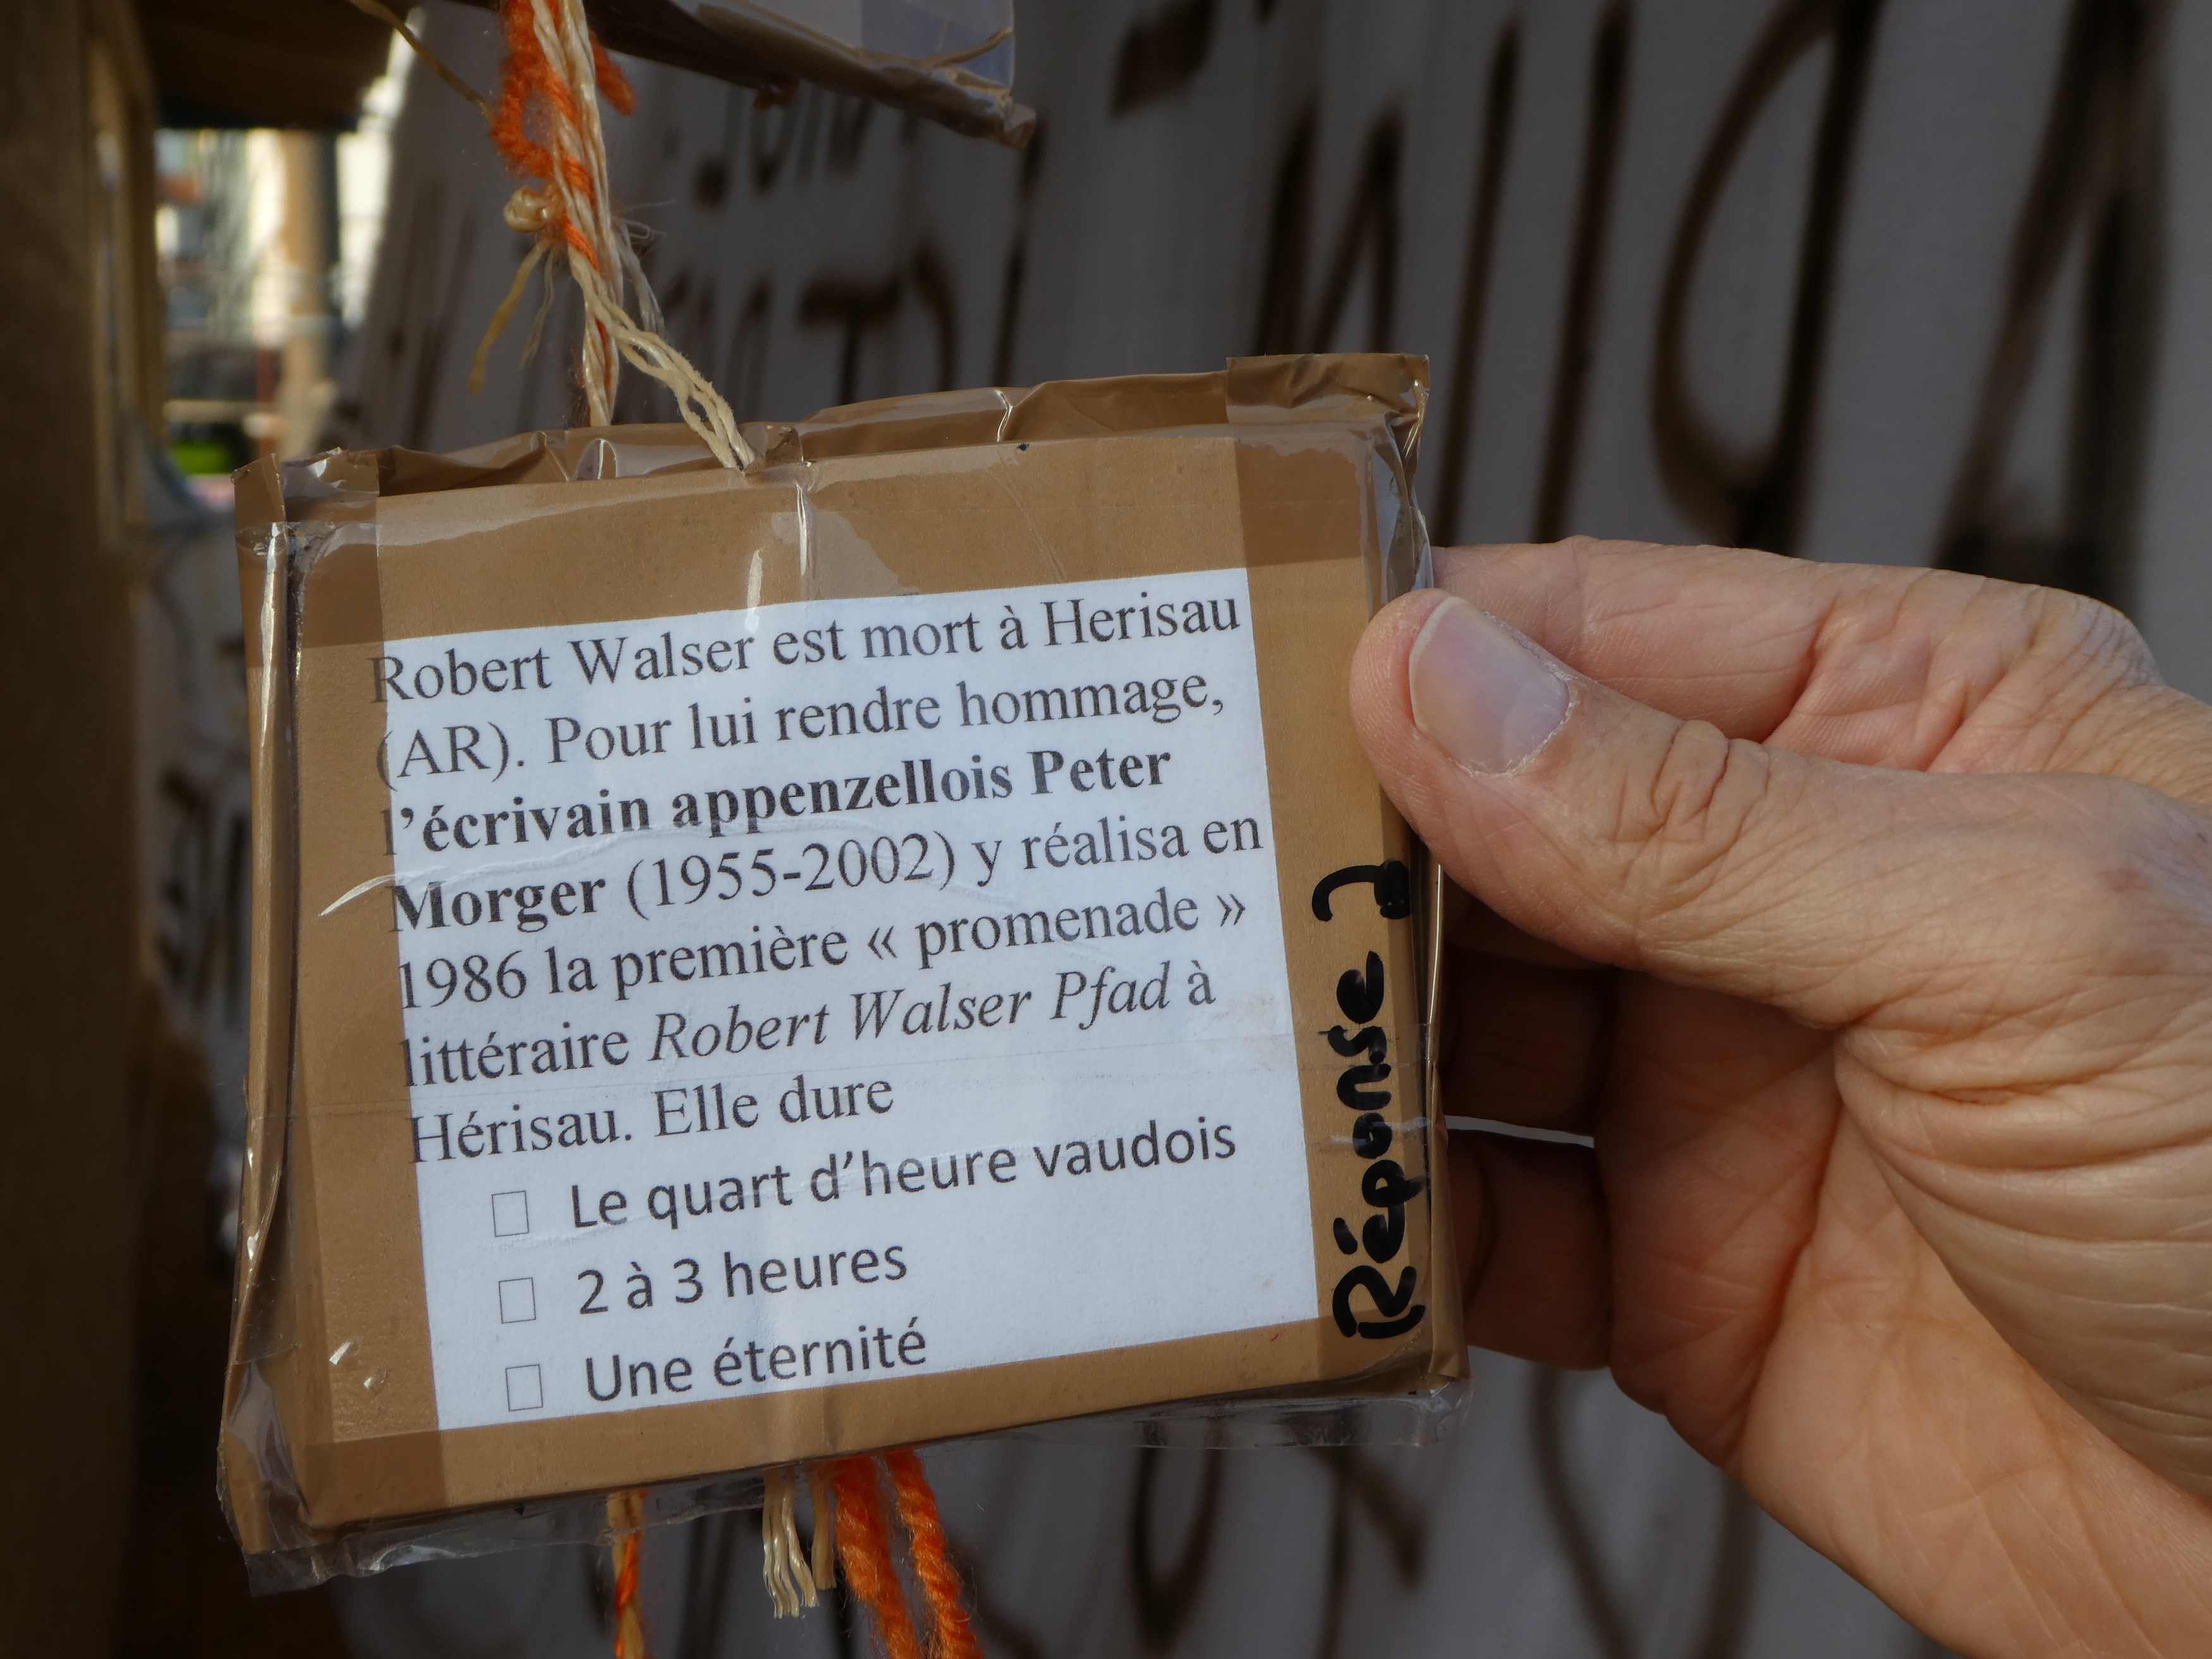 Robert Walser est mort à Herisau
(AR). Pour lui rendre hommage,
l’écrivain appenzellois Peter
Morger (1955-2002) y réalisa en
1986 la première « promenade »
littéraire Robert Walser Pfad à
Hérisau. Elle dure
□ Le quart d’heure vaudois
□ 2 à 3 heures
□ Une éternité
Réponse